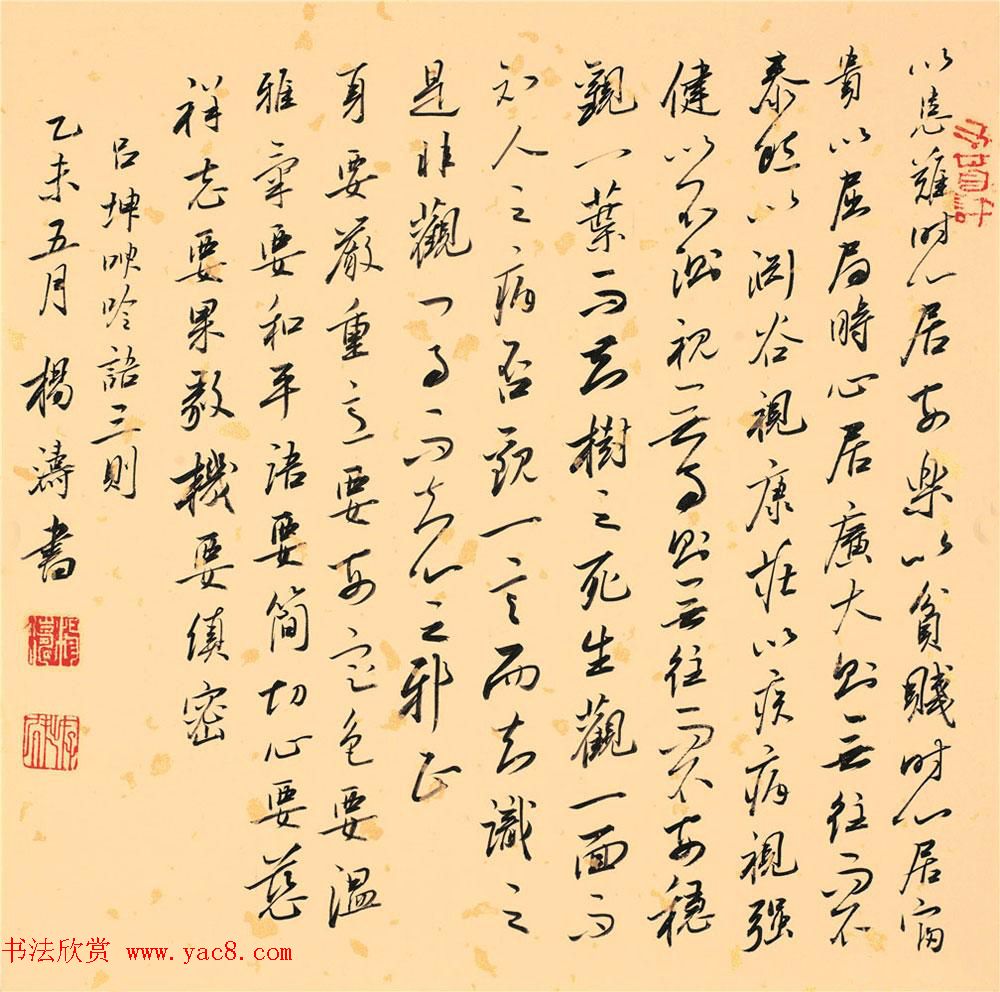 以患難时心居安樂以貧賤时心居富
貴以屈局時心居廣大則无往而不
泰然以渊谷視康莊以疾病視强
健以不测視无事則无往而不安穩
觀一葉而知樹之死生觀一面而
知人之病否觀一言而知識之
是非觀一事而知心之邪正
身要嚴重意要安定色要溫
雅氣要和平語要簡切心要慈
祥志要果毅機要縝密
吕坤呻吟語三則
乙未五月 楊濤書
书法欣赏 www.yac8.com